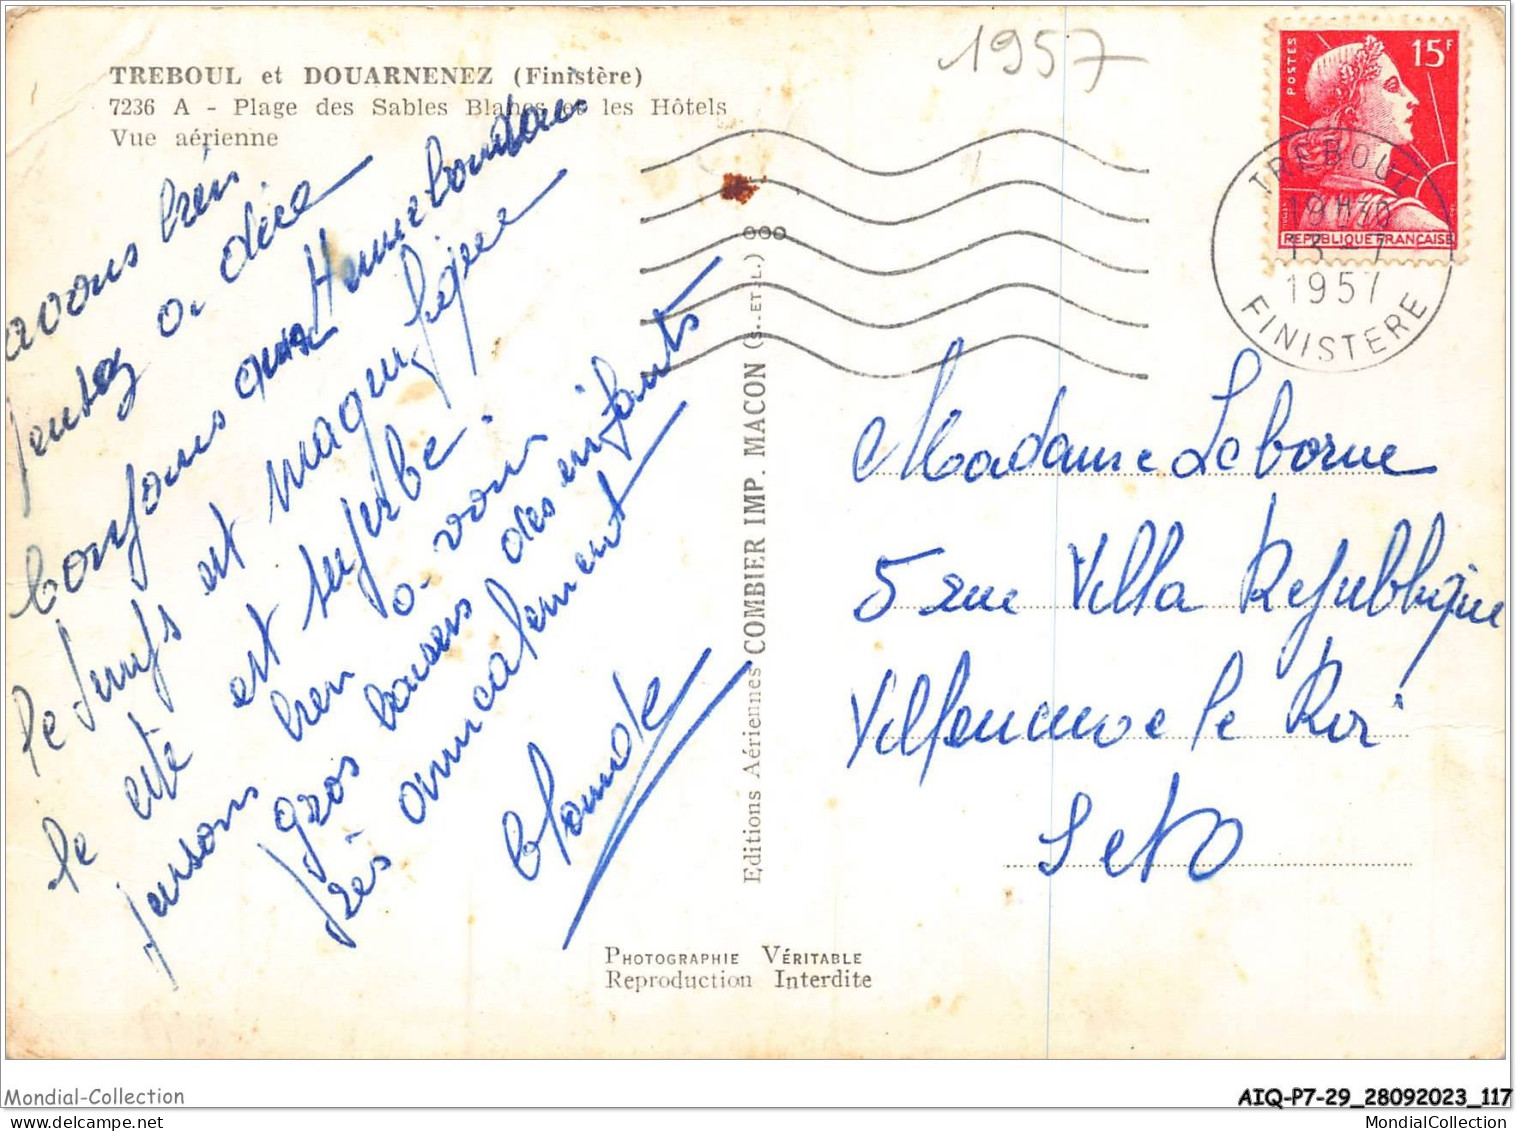 TREBOUL et DOUARNENEZ (Finistère)
7236 A - Plage des Sables Blancs et les Hôtels
Vue aérienne
1957
POSTES
15F
REPUBLIQUE FRANÇAISE
TREBOUL
13 - 7
1957
FINISTERE
avons bien
à dire
bonjour
le temps est magnifique
le est superbe.
bien à vous
gros baisers des enfants
très amicalement
Editions Aériennes COMBIER IMP. MACON (S.-ET-L.)
Madame Leborne
5 rue Villa République
Villeneuve le Roi
S et O
PHOTOGRAPHIE VÉRITABLE
Reproduction Interdite
Mondial-Collection
AIQ-P7-29_28092023_117
MondialCollection